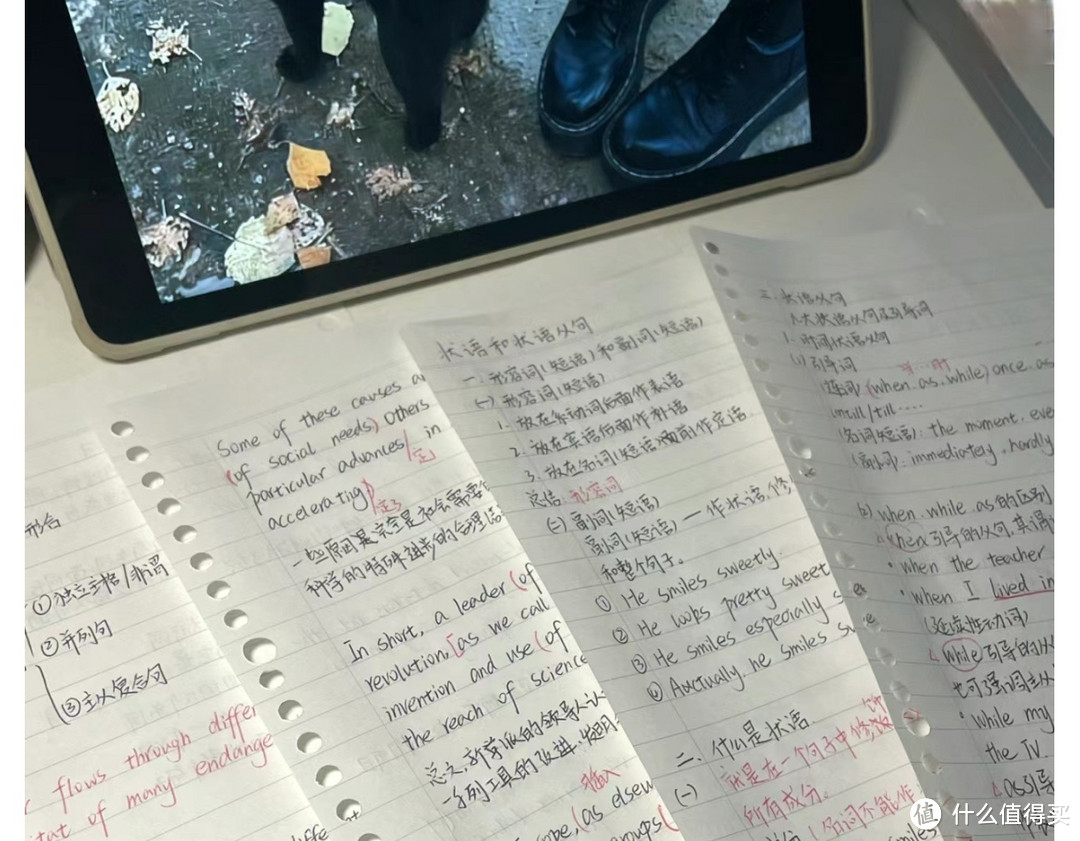 形合
①独立主格/非谓
②并列句
③主从复合句
flows through differ
tat of many endange
Some of these causes a
(of social needs) Others
particular advances/ in
定
acceleratig)
一些原因是完全是社会需要
科学的特殊进步的合理结
In short, a leader (of
revolution, [as we call
invention and use (of
the reach of science
总之,新学派的领导人认
一系列工具的改进、发明
插入
ope, (as elsew
roups (
状语和状语从句
一.形容词(短语)和副词(短语)
(一)形容词(短语)
1. 放在系动词后面作表语
2. 放在宾语后面作补语
3. 放在名词(短语)两前作定语
总结:形容词
(二)副词(短语)
副词(短语)一作状语,修
和整个句子。
① He smiles sweetly.
② He loops pretty sweet
③ He smiles especially s
④ Auctually. he smiles sw
二.什么是状语.
(一) 就是在一个句子中修饰
所有成分.
(名词不能作
三.状语从句
八大状语从句及引导词
1. 时间状语从句
(1)引导词
当…时
连词(when.as.while) once.as
(ntill/till....
(名词短语): the moment. eve
(副词: immediately, hardly
(2) when.while as的区别
when引导的从句,其谓
·when the teacher
·when I lived in
(延续性动词)
while引导的从
也可强调主从
·While my
the TV
as引导
值 什么值得买